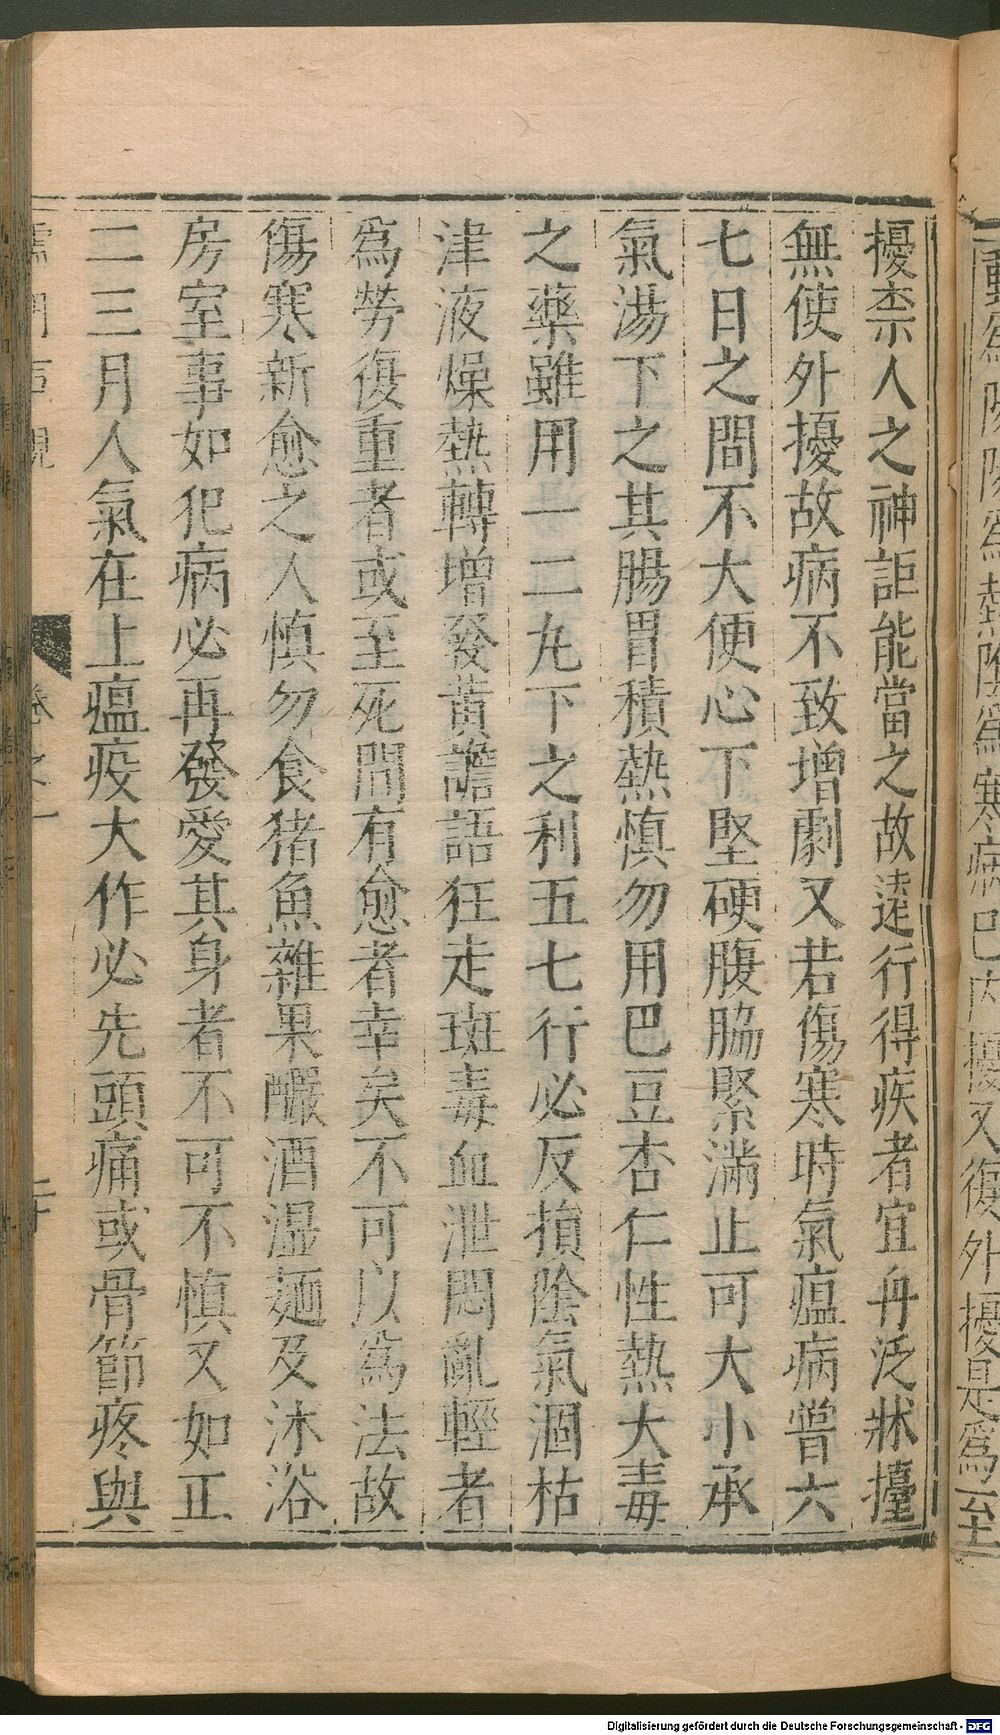 擾柰人之神詎能當之故遠行得疾者宜舟泛牀擡
無使外擾故病不致增劇又若傷寒時氣瘟病嘗六
七日之間不大便心下堅硬腹脇緊滿止可大小承
氣湯下之其腸胃積熱慎勿用巴豆杏仁性熱大毒
之藥雖用一二丸下之利五七行必反損陰氣涸枯
津液燥熱轉增發黃譫語狂走斑毒血泄悶亂輕者
為勞復重者或至死間有愈者幸矣不可以為法故
傷寒新愈之人慎勿食猪魚雜果釅酒湿麺及沐浴
房室事如犯病必再發愛其身者不可不慎又如正
二三月人氣在上瘟疫大作必先頭痛或骨節疼與
卷之一
Digitalisierung gefördert durch die Deutsche Forschungsgemeinschaft - DFG